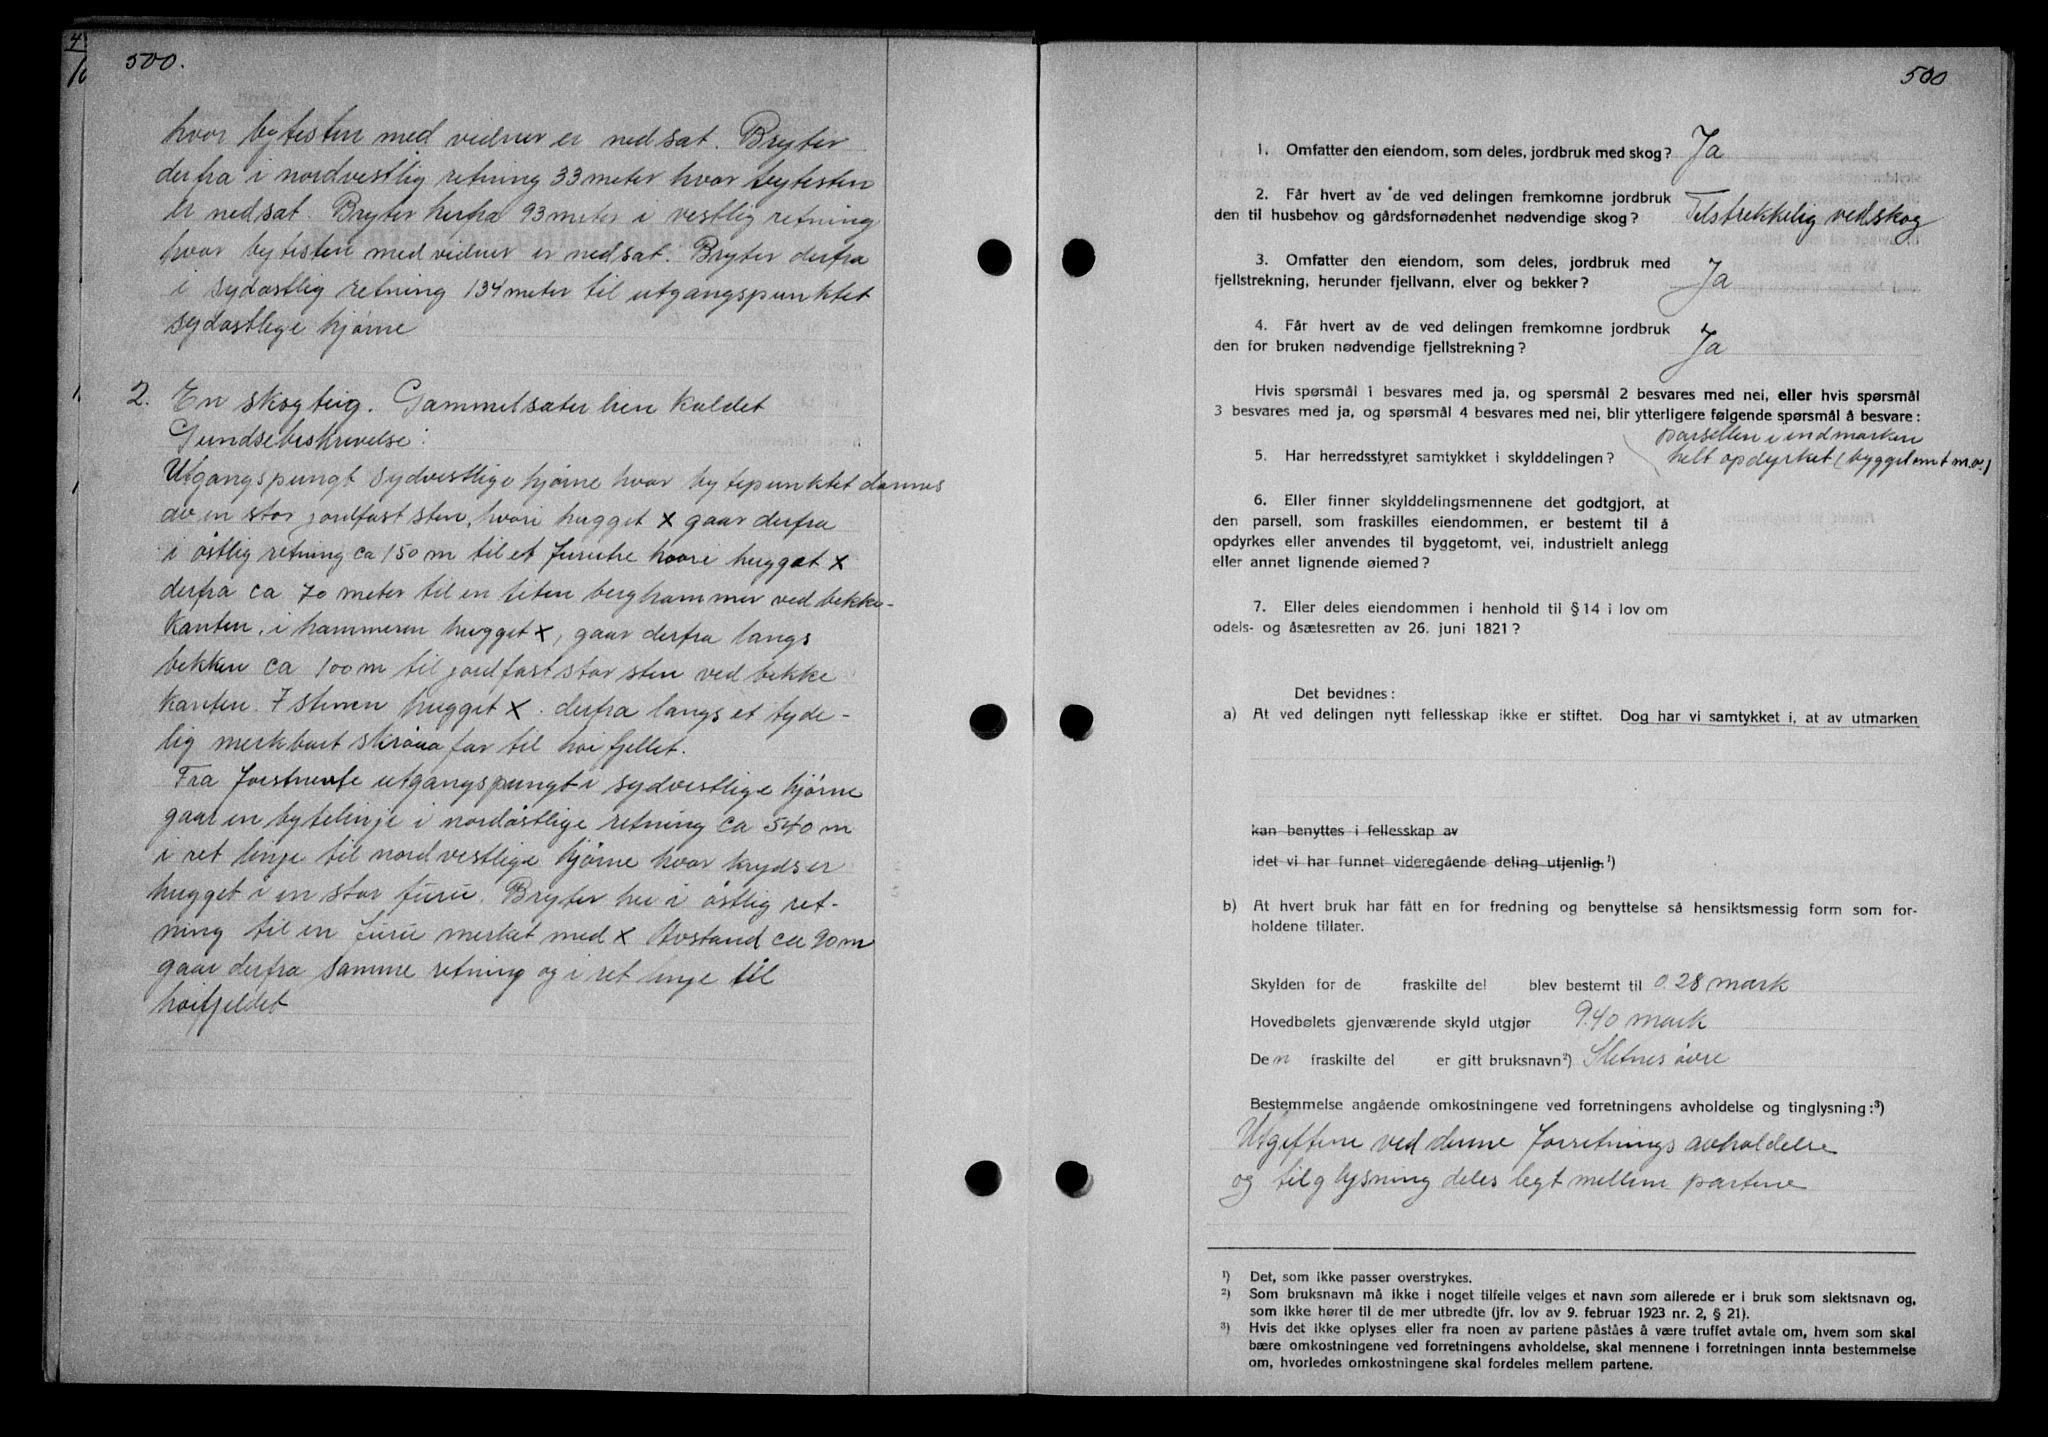 500.
hvor bytesten med vidner er nedsat. Bryter
derfra i nordvestlig retning 33 meter hvor bytesten
er nedsat. Bryter herfra 93 meter i vestlig retning
hvor bytesten med vidner er nedsat. Bryter derfra
i sydøstlig retning 134 meter til utgangspunktet
sydøstlige hjørne
2. En skogteig. Gammelsæterlien kaldet
Utgangspungt sydvestlige hjørne hvor bytepunktet dannes
av en stor jordfast sten, hvori hugget x gaar derfra
i østlig retning ca 150 m til et furutre hvori hugget x
derfra ca 70 meter til en liten berghammer ved bekke-
kanten, i hammeren hugget x, gaar derfra langs
bekken ca 100 m til jordfast stor sten ved bekke
kanten. I stenen hugget x. derfra langs et tyde-
lig merkbart far til høifjellet.
Fra utgangspungt i sydvestlige hjørne
gaar en bytelinje i nordøstlige retning ca 540 m
i ret linje til nordvestlige hjørne hvor kryds er
hugget i en stor furu. Bryter her i østlig ret-
ning til en furu merket med x Avstand ca 90 m
gaar derfra samme retning og i ret linje til
høifjeldet
500
1. Omfatter den eiendom, som deles, jordbruk med skog? Ja
2. Får hvert av de ved delingen fremkomne jordbruk
den til husbehov og gårdsfornødenhet nødvendige skog? Tilstrekkelig vedskog
3. Omfatter den eiendom, som deles, jordbruk med
fjellstrekning, herunder fjellvann, elver og bekker? Ja
4. Får hvert av de ved delingen fremkomne jordbruk
den for bruken nødvendige fjellstrekning? Ja
Hvis spørsmål 1 besvares med ja, og spørsmål 2 besvares med nei, eller hvis spørsmål
3 besvares med ja, og spørsmål 4 besvares med nei, blir ytterligere følgende spørsmål å besvare:
parsellen i indmarken
5. Har herredsstyret samtykket i skylddelingen? helt opdyrket (byggetomt m.v.)
6. Eller finner skylddelingsmennene det godtgjort, at
den parsell, som fraskilles eiendommen, er bestemt til å
opdyrkes eller anvendes til byggetomt, vei, industrielt anlegg
eller annet lignende øiemed?
7. Eller deles eiendommen i henhold til § 14 i lov om
odels- og åsætesretten av 26. juni 1821?
Det bevidnes:
a) At ved delingen nytt fellesskap ikke er stiftet. Dog har vi samtykket i, at av utmarken
kan benyttes i fellesskap av
idet vi har funnet videregående deling utjenlig.¹)
b) At hvert bruk har fått en for fredning og benyttelse så hensiktsmessig form som for-
holdene tillater.
Skylden for de fraskilte del blev bestemt til 0.28 mark
Hovedbølets gjenværende skyld utgjør 9.40 mark
Den fraskilte del er gitt bruksnavn²) Sletnes øvre
Bestemmelse angående omkostningene ved forretningens avholdelse og tinglysning:³)
Utgiftene ved denne forretnings avholdelse
og tilglysning deles legt mellem partene
¹) Det, som ikke passer overstrykes.
²) Som bruksnavn må ikke i noget tilfelle velges et navn som allerede er i bruk som slektsnavn og,
som ikke hører til de mer utbredte (jfr. lov av 9. februar 1923 nr. 2, § 21).
³) Hvis det ikke oplyses eller fra noen av partene påståes å være truffet avtale om, hvem som skal
bære omkostningene ved forretningens avholdelse, skal mennene i forretningen innta bestemmelse
om, hvorledes omkostningene skal fordeles mellem partene.